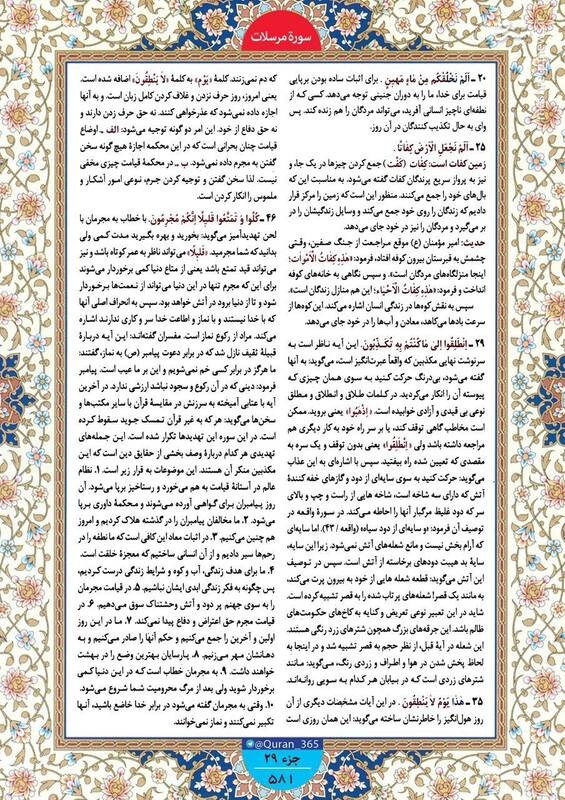 سورة مرسلات
۲۰ ـ اَلَمْ نَخْلُقْكُمْ مِنْ مَاءٍ مَهينٍ . برای اثبات ساده بودن برپایی
قیامت برای خدا، ما را به دوران جنینی توجه می‌دهد. کسی که از
نطفه‌ای ناچیز انسانی آفرید، می‌تواند مردگان را هم زنده کند. پس
وای به حال تکذیب کنندگان در آن روز.
۲۵ ـ اَلَمْ نَجْعَلِ الْاَرْضَ كِفاتًا .
زمین کفات است: کِفات (کَفْت) جمع کردن چیزها در یک جا، و
نیز به پرواز سریع پرندگان کفات گفته می‌شود. به مناسبت این که
بال‌های خود را جمع می‌کنند. منظور این است که زمین را مرکز قرار
دادیم که زندگان را روی خود جمع می‌کند و وسایل زندگیشان را در
بر می‌گیرد و مردگان را نیز در خود جای می‌دهد.
حدیث: امیر مؤمنان (ع) موقع مراجعت از جنگ صفین، وقتی
چشمش به قبرستان بیرون کوفه افتاد، فرمود: «هٰذِهِ كِفاتُ الْاَمْواتِ؛
اینجا منزلگاه‌های مردگان است»، و سپس نگاهی به خانه‌های کوفه
انداخت و فرمود: «هٰذِهِ كِفاتُ الْاَحْياءِ؛ این هم منازل زندگان است».
سپس به نقش کوه‌ها در زندگی انسان اشاره می‌کند. این کوه‌ها از
سرعت بادها می‌کاهد، معادن و آب‌ها را در خود جای می‌دهد.
۲۹ ـ اِنْطَلِقُوا اِلىٰ ما كُنْتُمْ بِهِ تُكَذِّبُونَ. این آیه ناظر است به
سرنوشت نهایی مکذبین که واقعاً عبرت‌انگیز است، می‌گوید: به آنها
گفته می‌شود، بی‌درنگ حرکت کنید به سوی همان چیزی که
پیوسته آن را انکار می‌کردید. در کلمات طلاق و انطلاق و مطلق
نوعی بی قیدی و آزادی خوابیده است. «اِذْهَبُوا» یعنی بروید. ممکن
است مخاطب گاهی توقف کند، یا بر سر راه خود به کار دیگری هم
مراجعه داشته باشد ولی «اِنْطَلِقُوا» یعنی بدون توقف و یک سره به
مقصدی که تعیین شده راه بیفتید. سپس با اشاره‌ای به این عذاب
می‌گوید: حرکت کنید به سوی سایه‌ای از دود و گازهای خفه کنندهٔ
آتش که دارای سه شاخه است، شاخه هایی از راست و چپ و بالای
سر که دود غلیظ مرگبار آنها را احاطه می‌کند. در سورهٔ واقعه در
توصیف آن فرمود: «و سایه‌ای از دود سیاه» (واقعه / ۴۳). اما سایه‌ای
که آرام بخش نیست و مانع شعله‌های آتش نمی‌شود. زیرا این سایه،
سایهٔ بد هیبت دودهای برخاسته از آتش است. سپس در توصیف
این آتش می‌گوید: قطعه شعله هایی از خود به بیرون پرت می‌کند،
به مانند یک قصر! شعله‌های پرتاب شده را به قصر تشبیه کرده است.
شاید در این تعبیر نوعی تعریض و کنایه به کاخ‌های حکومت‌های
ظالم باشد. این جرقه‌های بزرگ همچون شترهای زرد رنگی هستند.
این شعله در آیهٔ قبل، از نظر حجم به قصر تشبیه شد و در اینجا به
لحاظ پخش شدن در هوا و اطراف و زردی رنگ، می‌گوید: مانند
شترهای زردی است که در بیابان هر کدام به سویی روانه‌اند.
۳۵ ـ هٰذا يَوْمُ لا يَنْطِقُونَ . در این آیات مشخصات دیگری از آن
روز هول‌انگیز را خاطرنشان ساخته می‌گوید: این همان روزی است
که دم نمی‌زنند. کلمهٔ «يَوْم» به کلمهٔ «لا يَنْطِقُونَ» اضافه شده است.
یعنی امروز، روز حرف نزدن و غلاف کردن کامل زبان است. و به آنها
اجازه داده نمی‌شود که عذرخواهی کنند. نه حق حرف زدن دارند و
نه حق دفاع از خود. این امر دو گونه توجیه می‌شود: الف ـ اوضاع
قیامت چنان بحرانی است که در این محکمه اجازهٔ هیچ گونه سخن
گفتن به مجرم داده نمی‌شود. ب ـ در محکمهٔ قیامت چیزی مخفی
نیست. لذا سخن گفتن و توجیه کردن جرم، نوعی امور آشکار و
ملموس را انکار کردن است.
۴۶ ـ كُلُوا وَ تَمَتَّعُوا قَليلًا اِنَّكُمْ مُجْرِمُونَ. با خطاب به مجرمان با
لحن تهدیدآمیز می‌گوید: بخورید و بهره بگیرید مدت کمی ولی
بدانید که شما مجرمید. «قَليلًا» می‌تواند ناظر به عمر کوتاه باشد و نیز
می‌تواند قید تمتع باشد یعنی از متاع دنیا کمی برخوردار می‌شوند
برای این که مجرم تنها در این دنیا می‌تواند از نعمت‌ها برخوردار
شود و تا از دنیا برود در آتش خواهد بود. سپس به انحراف اصلی آنها
که با خدا نیستند و با نماز و اطاعت خدا سر و کاری ندارند اشاره
می‌کند. مراد از رکوع نماز است. مفسران گفته‌اند: این آیه دربارهٔ
قبیلهٔ ثقیف نازل شد که در برابر دعوت پیامبر (ص) به نماز، گفتند:
ما هرگز در برابر کسی خم نمی‌شویم و این بر ما عیب است. پیامبر
فرمود: دینی که در آن رکوع و سجود نباشد ارزشی ندارد. در آخرین
آیه با عتابی آمیخته به سرزنش در مقایسهٔ قرآن با سایر مکتب‌ها و
سخن‌ها می‌گوید: هر که به غیر قرآن تمسک جوید سقوط کرده
است. در این سوره این تهدیدها تکرار شده است. این جمله‌های
تهدیدی هر کدام دربارهٔ وصف بخشی از حقایق دین است که این
مکذبین منکر آن هستند. این موضوعات به قرار زیر است. ۱. نظام
عالم در آستانهٔ قیامت به هم می‌خورد و رستاخیز برپا می‌شود. آن
روز پیامبران برای گواهی آورده می‌شوند و محکمهٔ داوری برپا
می‌شود. ۲. ما مخالفان پیامبران را در گذشته هلاک کردیم و امروز
هم چنین می‌کنیم. ۳. در اثبات معاد این کافی است که ما نطفه را در
رحم‌ها سیر دادیم و از آن انسانی ساختیم که معجزهٔ خلقت است.
۴. ما برای هدف زندگی، آب و کوه و شرایط زندگی درست کردیم،
پس چگونه به فکر زندگی ابدی ایشان نباشیم. ۵. در قیامت مجرمان
را به سوی جهنم پر دود و آتش وحشتناک سوق می‌دهیم. ۶. در
قیامت مجرم حق اعتراض و دفاع پیدا نمی‌کند. ۷. ما در این روز
اولین و آخرین را جمع می‌کنیم و حکم آنها را صادر می‌کنیم و به
دهانشان مهر می‌زنیم. ۸. پارسایان بهترین وضع را در بهشت
خواهند داشت. ۹. به مجرمان خطاب است که در این دنیا کمی
برخوردار شوید ولی بعد از مرگ محرومیت شما شروع می‌شود.
۱۰. وقتی به مجرمان گفته می‌شود در برابر خدا خاضع باشید، آنها
تکبیر نمی‌کنند و نماز نمی‌خوانند.
@Quran_365
جزء ۲۹
۵۸۱